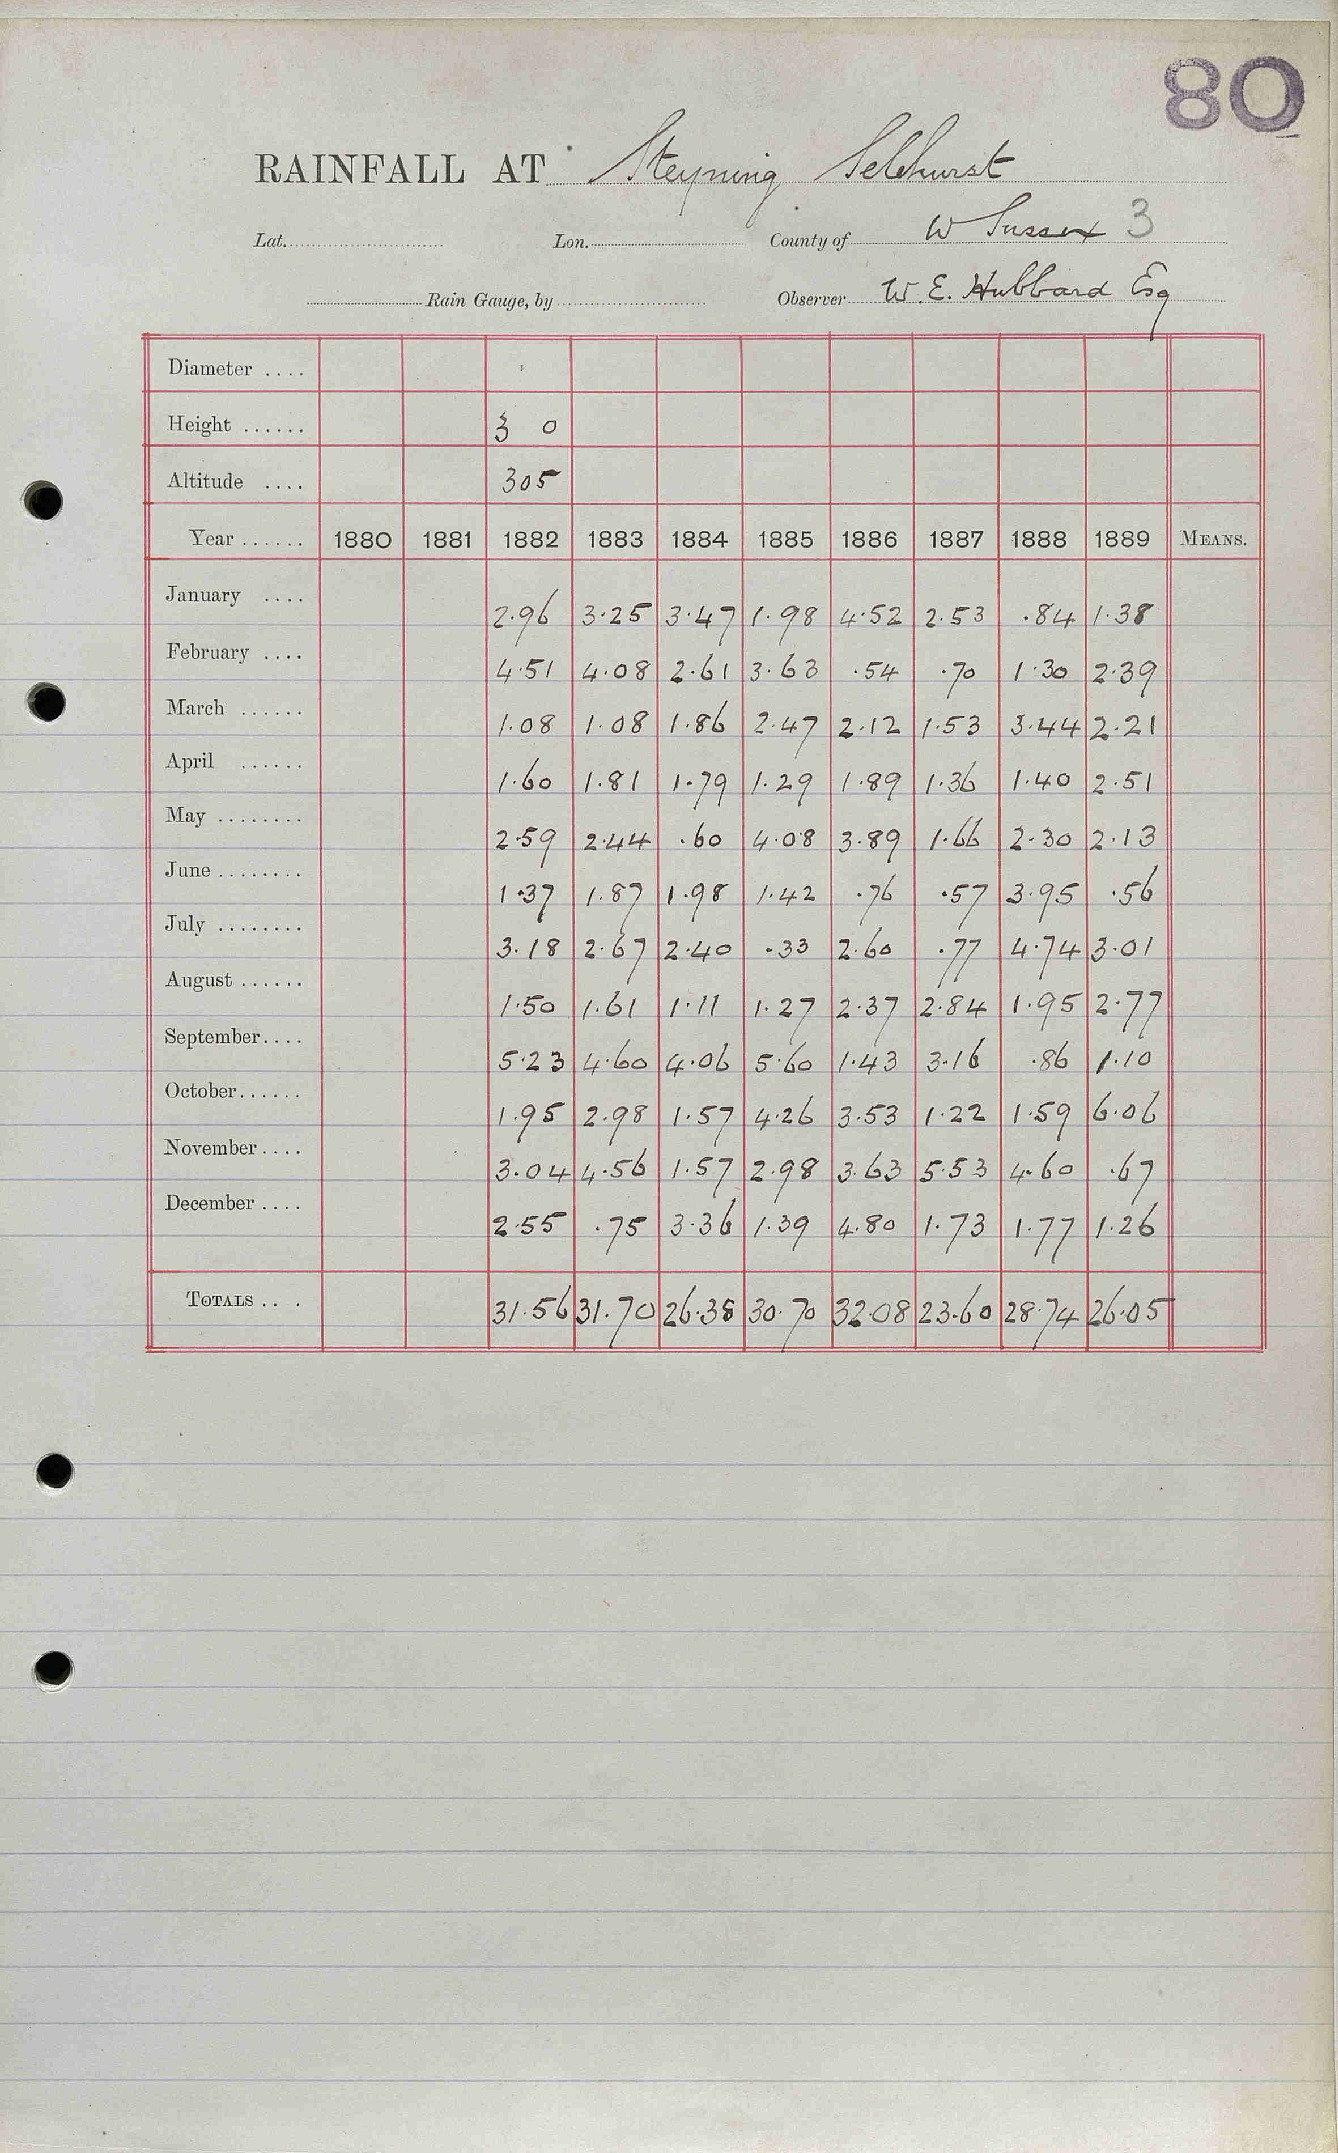 80
RAINFALL AT Steyning Selhurst
Lat. Lon. County of W Sussex 3
Rain Gauge, by Observer W. E. Hubbard Esq
Diameter ....
Height ...... 3 0
Altitude .... 305
Year ...... 1880 1881 1882 1883 1884 1885 1886 1887 1888 1889 MEANS.
January .... 2.96 3.25 3.47 1.98 4.52 2.53 .84 1.38
February .... 4.51 4.08 2.61 3.63 .54 .70 1.30 2.39
March ...... 1.08 1.08 1.86 2.47 2.12 1.53 3.44 2.21
April ...... 1.60 1.81 1.79 1.29 1.89 1.36 1.40 2.51
May ........ 2.59 2.44 .60 4.08 3.89 1.66 2.30 2.13
June ........ 1.37 1.87 1.98 1.42 .76 .57 3.95 .56
July ........ 3.18 2.67 2.40 .33 2.60 .77 4.74 3.01
August ...... 1.50 1.61 1.11 1.27 2.37 2.84 1.95 2.77
September.... 5.23 4.60 4.06 5.60 1.43 3.16 .86 1.10
October...... 1.95 2.98 1.57 4.26 3.53 1.22 1.59 6.06
November.... 3.04 4.56 1.57 2.98 3.63 5.53 4.60 .67
December .... 2.55 .75 3.36 1.39 4.80 1.73 1.77 1.26
TOTALS .. . 31.56 31.70 26.38 30.70 32.08 23.60 28.74 26.05